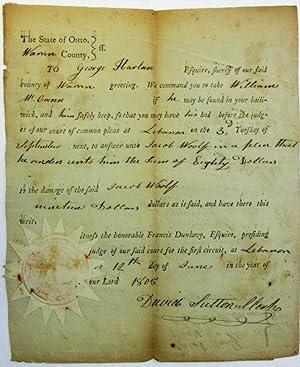 The State of Ohio,
Warren County, } ss.
TO George Harlan Esquire, sheriff of our said
county of Warren greeting. We command you to take William
McCann if he may be found in your baili-
wick, and him safely keep, so that you may have his bod before the judg-
es of our court of common pleas at Lebanon on the 3d Tuesday of
September next, to answer unto Jacob Woolf in a plea that
he renders unto him the Sum of Eighty Dollars
to the damage of the said Jacob Woolf
nineteen Dollars dollars as it is said, and have there this
writ.
itness the honorable Francis Dunlavy, Esquire, presiding
judge of our said court for the first circuit, at Lebanon
12th day of June in the year of
our Lord 1808
David Sutton Clerk